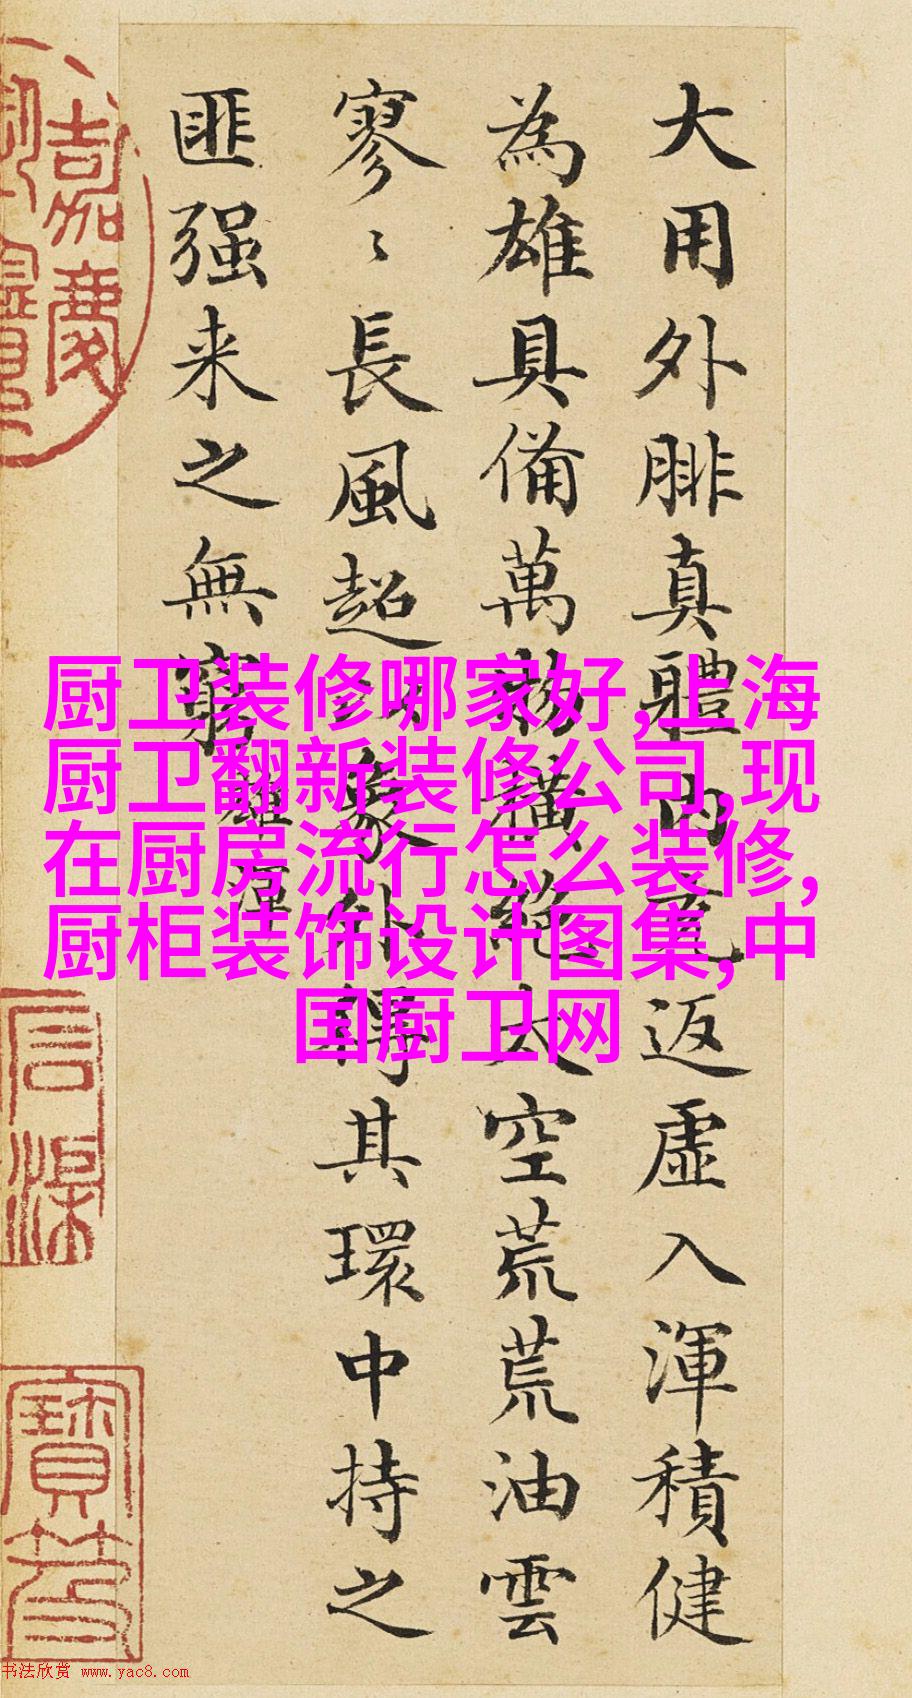 大用外腓真體內充返虛入渾積健
為雄具備萬物橫絕太空荒荒油雲
寥〻長風超以象外得其環中持之
匪强来之無窮
雄渾
嘉慶
厨卫装修哪家好,上海
厨卫翻新装修公司,现
在厨房流行怎么装修,
厨柜装饰设计图集,中
国厨卫网
书法欣赏 www.yac8.com